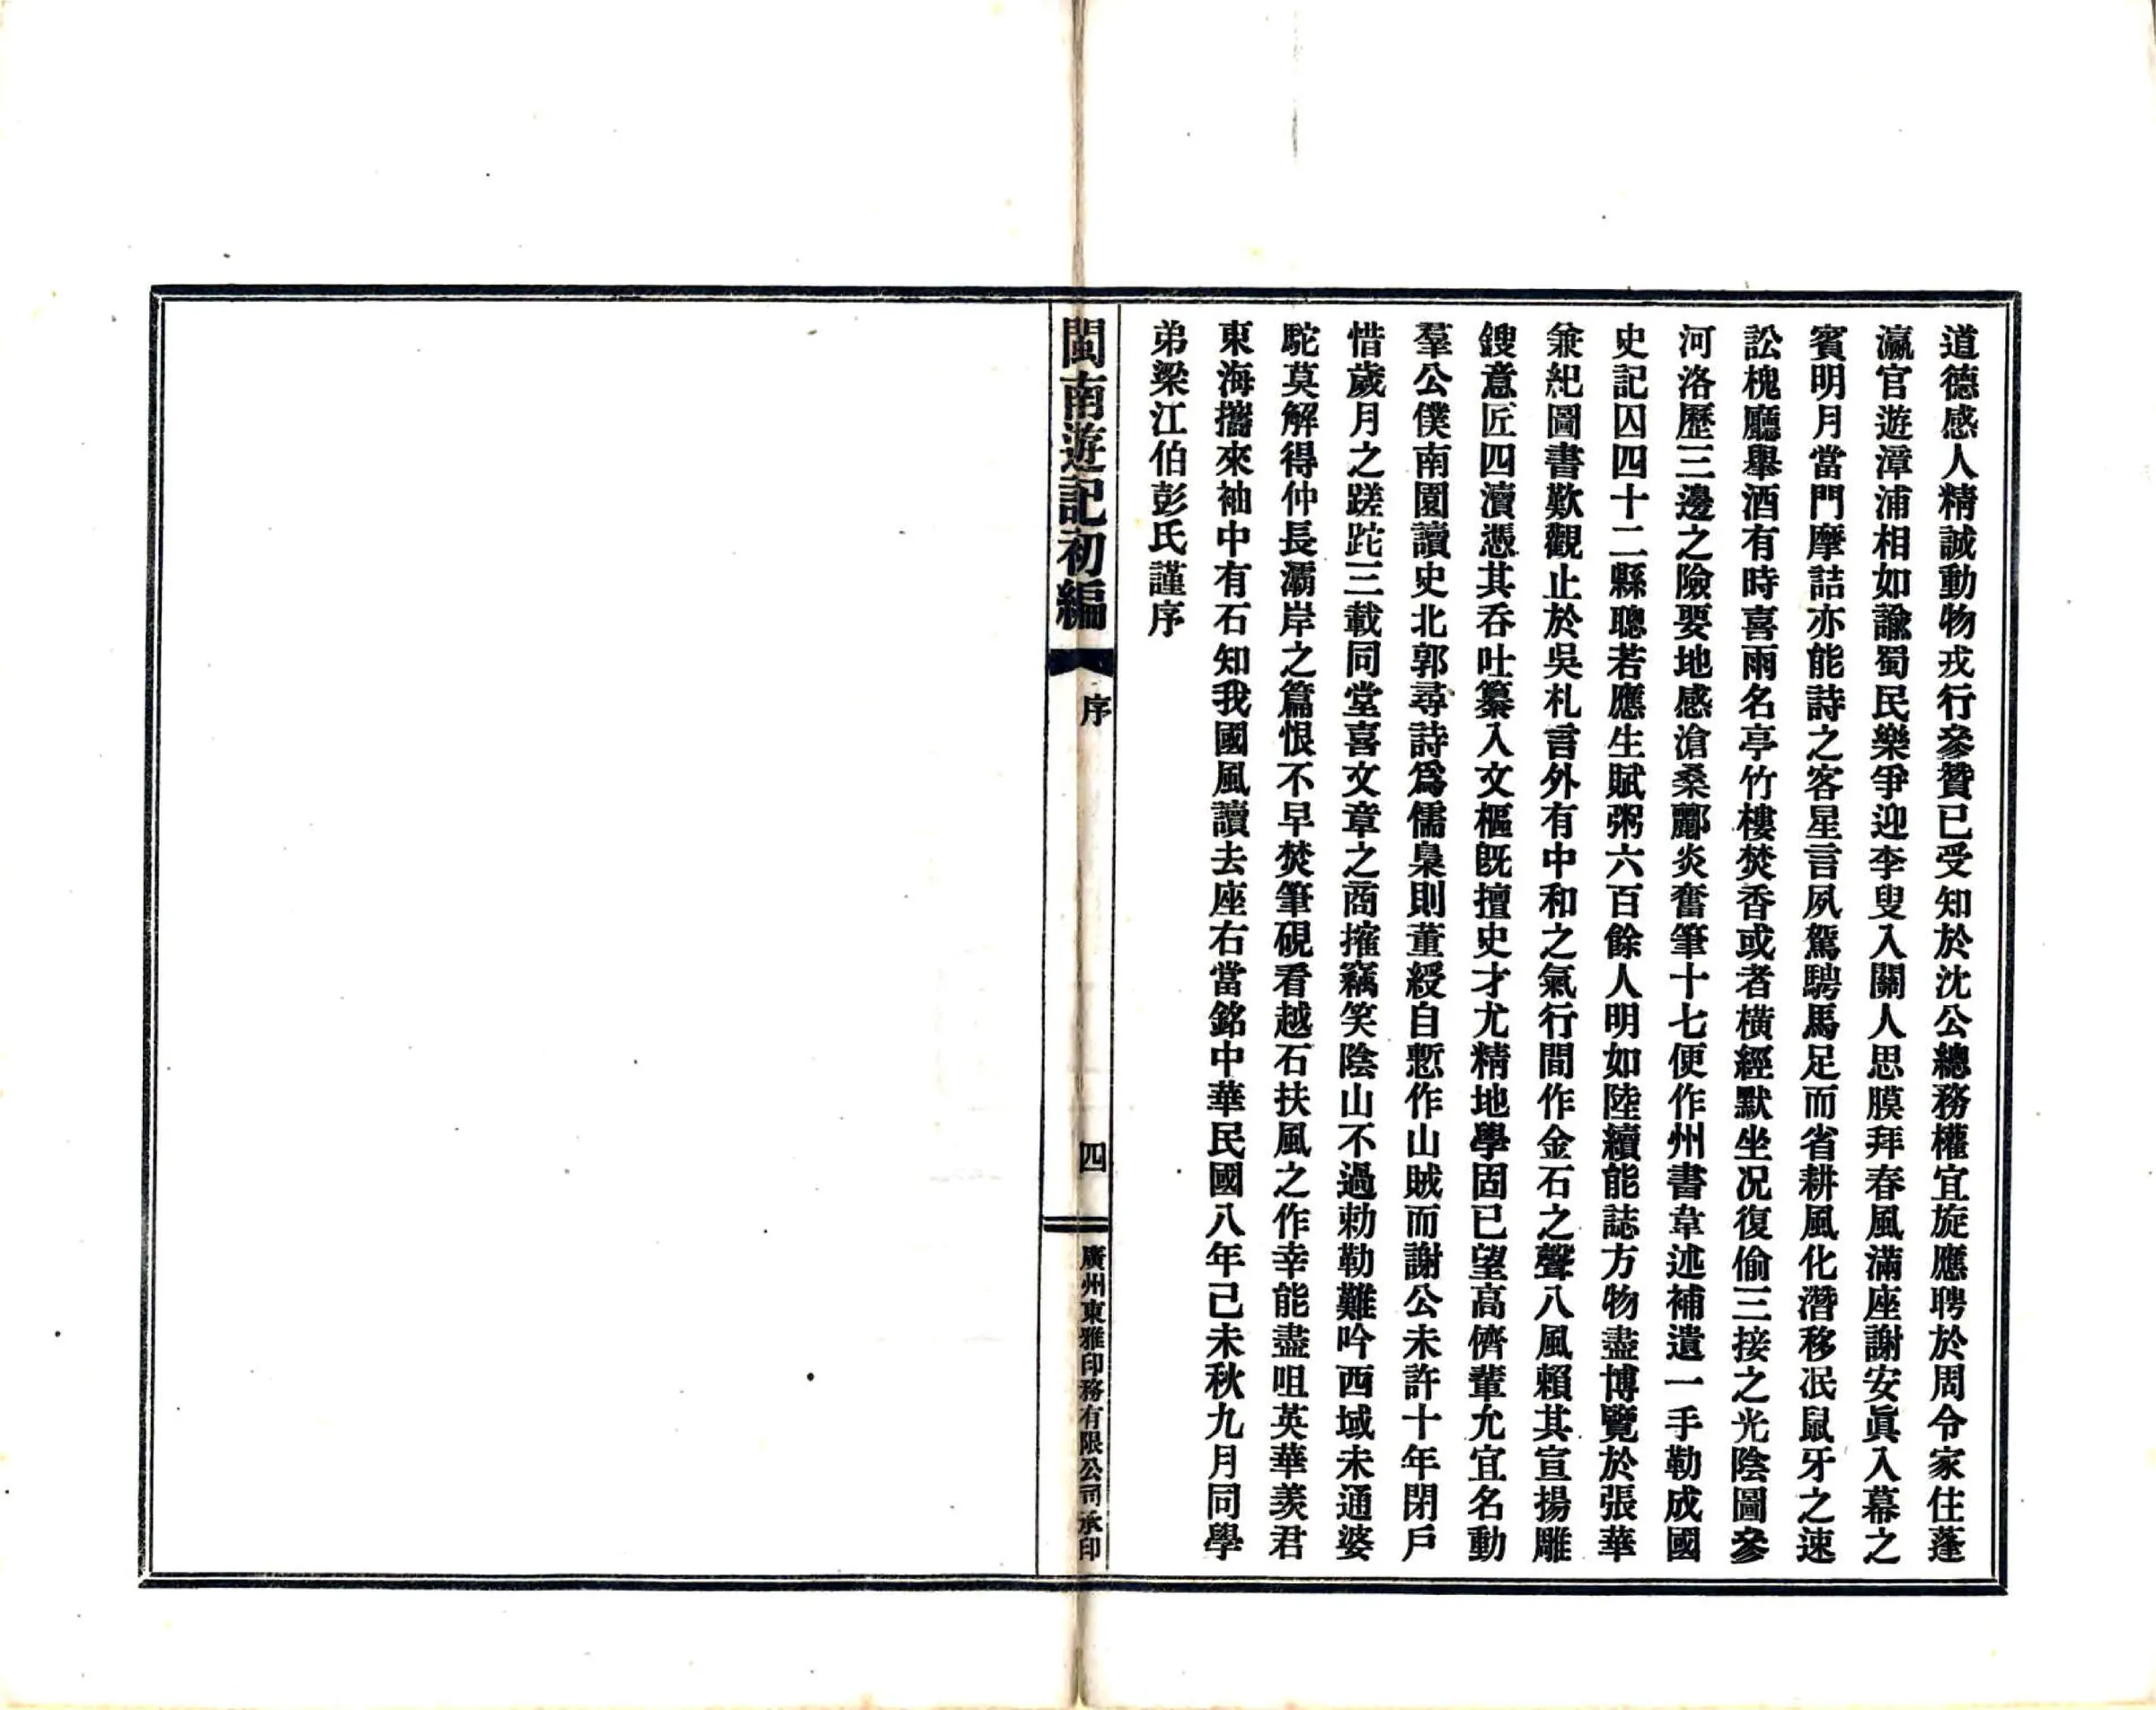 道德感人精誠動物戎行參贊已受知於沈公總務權宜旋應聘於周令家住蓬
瀛官遊漳浦相如諭蜀民樂爭迎李叟入關人思膜拜春風滿座謝安眞入幕之
賓明月當門摩詰亦能詩之客星言夙駕騁馬足而省耕風化潛移泯鼠牙之速
訟槐廳舉酒有時喜雨名亭竹樓焚香或者橫經默坐况復偷三接之光陰圖參
河洛歷三邊之險要地感滄桑酈炎奮筆十七便作州書韋述補遺一手勒成國
史記囚四十二縣聰若應生賦粥六百餘人明如陸續能誌方物盡博覽於張華
兼紀圖書歎觀止於吳札言外有中和之氣行間作金石之聲八風賴其宣揚雕
鎪意匠四瀆憑其吞吐纂入文樞旣擅史才尤精地學固已望高儕輩允宜名動
羣公僕南園讀史北郭尋詩爲儒梟則董綬自慙作山賊而謝公未許十年閉戶
惜歲月之蹉跎三載同堂喜文章之商搉竊笑陰山不過勅勒難吟西域未通婆
駝莫解得仲長灞岸之篇恨不早焚筆硯看越石扶風之作幸能盡咀英華羨君
東海攜來袖中有石知我國風讀去座右當銘中華民國八年己未秋九月同學
弟梁江伯彭氏謹序
閩南遊記初編
序
四
廣州東雅印務有限公司承印